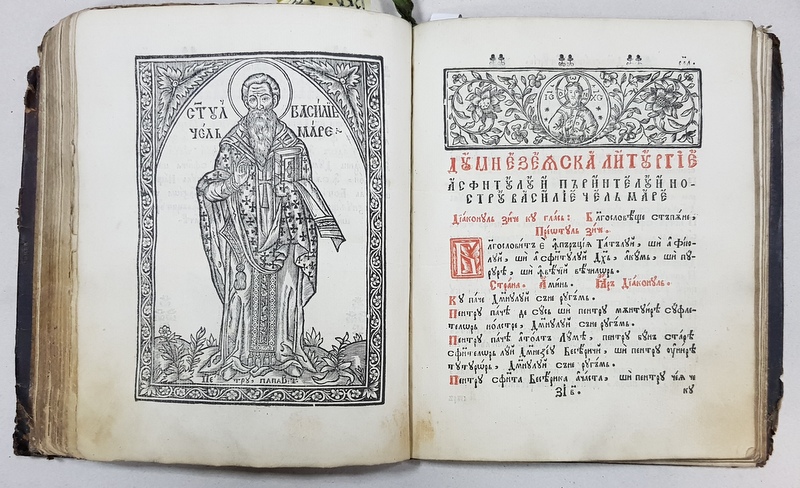 СТ҃УЛ ВАСИЛІЕ
ЧЕ́ЛЬ МА́РЕ
ПЕТРУ. ПАПАВ. Т.
ІС ХС
ДꙋМНЕЗЕѦСКА ЛИТꙋРГІЕ
А СФИ́ТꙋЛꙋЙ ПЪРИ́НТЕЛꙋЙ НО-
СТРꙋ ВАСИ́ЛІЕ ЧЕ́ЛЬ МА́РЕ
Дїаконꙋль зи́че кꙋ гла́сь: Бл҃гословѣ́ще стъпа́не,
Прїѡтꙋль зи́че.
Бл҃гослови́тъ є̂ ꙟ̂пъръцїа Та́тълꙋй, ши̂ а̂ фїю-
лꙋй, ши̂ а̂ сфи́нтꙋлꙋй Дх҃ь, а̂кꙋмь, ши̂ пꙋ-
рꙋрѣ, ши̂ ꙟ̂ вѣчїй вѣчилѡрь.
Стра́на. А̂ми́нь. Дїа́конꙋль.
Кꙋ па́че Дм҃нꙋлꙋй съне рꙋгъмь.
Пе́нтрꙋ па́чѣ де сꙋсь ши̂ пе́нтрꙋ мънтꙋи́рѣ сꙋфле-
телѡрь но́астре, Дм҃нꙋлꙋй съне рꙋгъмь.
Пе́нтрꙋ па́чѣ а̂то́атъ Лꙋ́мѣ, пе́нтрꙋ бꙋ́нъ ста́рѣ
сфи́нтелѡрь лꙋй Дм҃незеꙋ Бесѣ́ричй, ши̂ пе́нтрꙋ ᲂу̂ни́рѣ
тꙋтꙋрѡрь, Дм҃нꙋлꙋй съне рꙋгъмь.
Пе́нтрꙋ сфи́нта Бесѣ́рика ача́ста, ши̂ пе́нтрꙋ че́й че
кꙋ